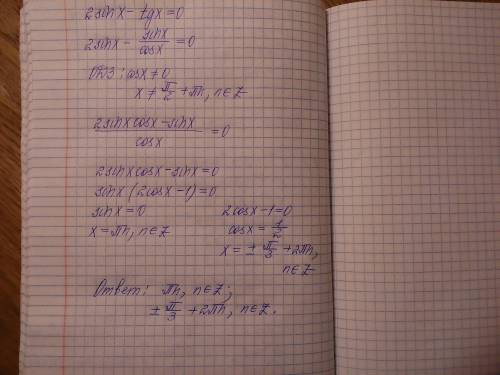 2sinx - tgx = 0
2sinx - sinx/cosx = 0
ОДЗ: cosx ≠ 0
x ≠ π/2 + πn, n∈Z
(2sinxcosx - sinx)/cosx = 0
2sinxcosx - sinx = 0
sinx(2cosx - 1) = 0
sinx = 0
x = πn, n∈Z
2cosx - 1 = 0
cosx = 1/2
x = ± π/3 + 2πn,
n∈Z
Ответ: πn, n∈Z;
± π/3 + 2πn, n∈Z.